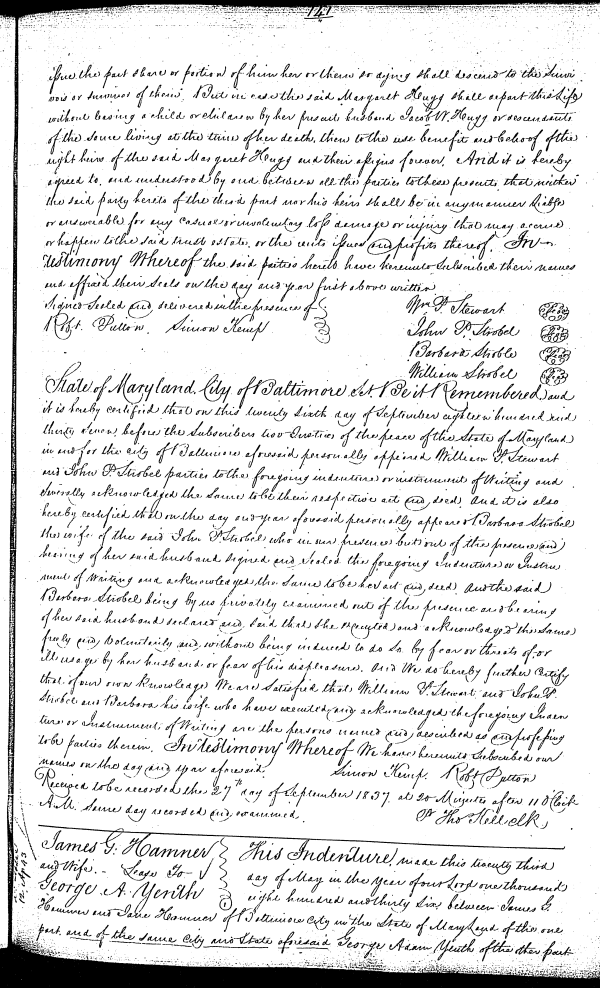 141
issue the part share or portion of him her or them so dying shall descend to the survi
vois or survivor of them. But in case the said Margaret Hugg shall depart this Life
without leaving a child or children by her present husband Jacob W. Hugg or descendants
of the same living at the time of her death, then to the use benefit and behoof of the
right heirs of the said Margaret Hugg and their assigns forever. And it is hereby
agreed to, and understood by and between all the parties to these presents, that neither
the said party hereto of the third part nor his heirs shall be in any manner liable
or answerable for any casual or involuntary loss damage or injury that may accrue
or happen to the said trust estate, or the rents issues and profits thereof. In
Testimony Whereof the said parties hereto have hereunto Subscribed their names
and affixed their Seals on the day and year first above written
Signed Sealed and delivered in the presence of
Robt. Patton. Simon Kemp
Wm. P. Stewart (Seal)
John P. Strobel (Seal)
Barbara Stroble (Seal)
William Strobel (Seal)
State of Maryland, City of Baltimore Sct. Be it Remembered, and
it is hereby certified that on this twenty sixth day of September eighteen hundred and
thirty seven, before the Subscribers two Justices of the peace of the State of Maryland
in and for the city of Baltimore aforesaid personally appeared William P. Stewart
and John P. Strobel parties to the foregoing indenture or instrument of Writing and
severally acknowledged the same to be their respective act and deed. And it is also
hereby certified that on the day and year aforesaid personally appeared Barbara Strobel
the wife of the said John P. Strobel who in our presence but out of the presence and
hearing of her said husband signed and sealed the foregoing Indenture or Instru
ment of Writing and acknowledged the same to be her act and deed. And the said
Barbara Strobel being by us privately examined out of the presence and hearing
of her said husband declared and said that she executed and acknowledged the same
freely and Voluntarily and without being induced to do so by fear or threats of or
ill usage by her husband or fear of his displeasure. And We do hereby further certify
that of our own knowledge We are satisfied that William P. Stewart and John P.
Strobel and Barbara his wife who have executed and acknowledged the foregoing Inden
ture or Instrument of Writing are the persons named and described as and professing
to be parties therein. In Testimony Whereof We have hereunto Subscribed our
names on the day and year aforesaid. Simon Kemp. Robt. Patton
Received to be recorded the 27th day of September 1837, at 20 Minutes after 11 O'Clock
A.M. Same day recorded and examined. Pr Tho Kell clk
James G. Hamner
and Wife. - Lease To -
George A. Yenith
This Indenture, made this twenty third
day of May in the Year of our Lord one thousand
eight hundred and thirty Six, between James G.
Hamner and Jane Hamner of Baltimore City in the State of Maryland of the one
part, and of the same city and State aforesaid George Adam Yenith of the other part